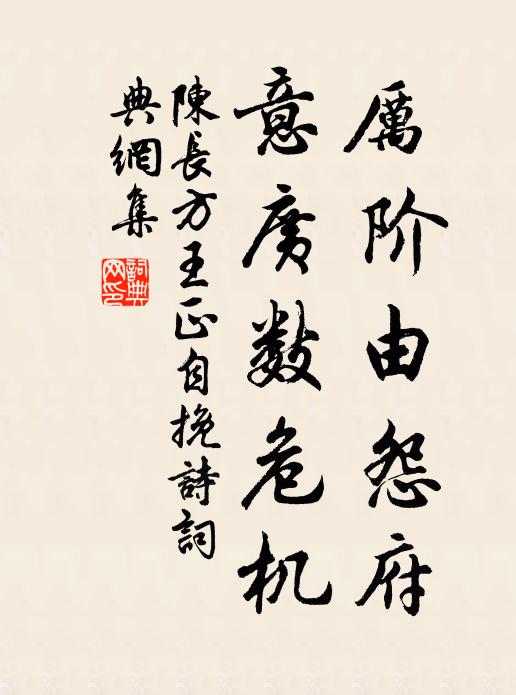 厲阶由怨府
意廣數危机
陳長方王正自挽詩詞
典網集
詞典
网印